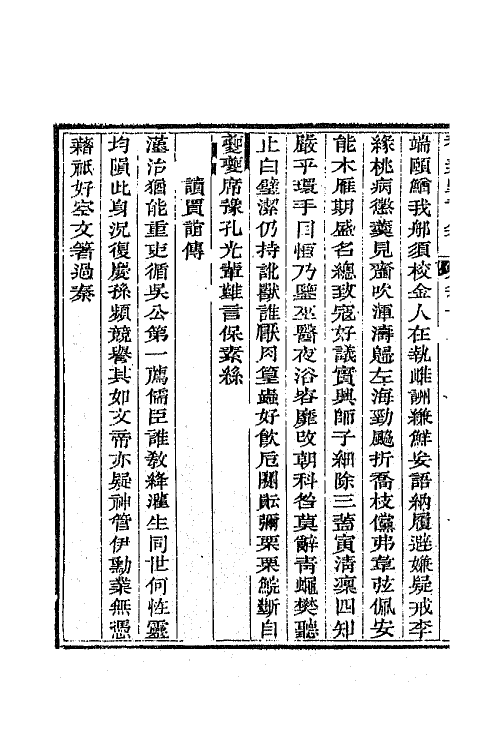 端頤鮹我邮須校金人在執雌詶緣鮮安語納履避嫌疑戒李
緣桃病懲羹見虀吹渾濤歸左海勁颷折喬枝儻弗韋弦佩安
能木雁期盛名總致寇好議實興師子細除三蓋寅清稟四知
嚴平環手目恒乃鑒巫醫夜浴嵜靡改朝科咎莫辭青蠅樊聽
止白璧潔仍持訛獸誰厭肉篁蟲好飲卮闗阮彌栗栗鯇斷自
夔夔席豫孔光輩難言保素絲
讀賈誼傳
漢治猶能重吏循吳公第一薦儒臣誰教絳灌生同世何怪靈
均隕此身況復慶孫頻競譽其如文帝亦疑神管伊勳業無憑
藉祇好空文著過秦